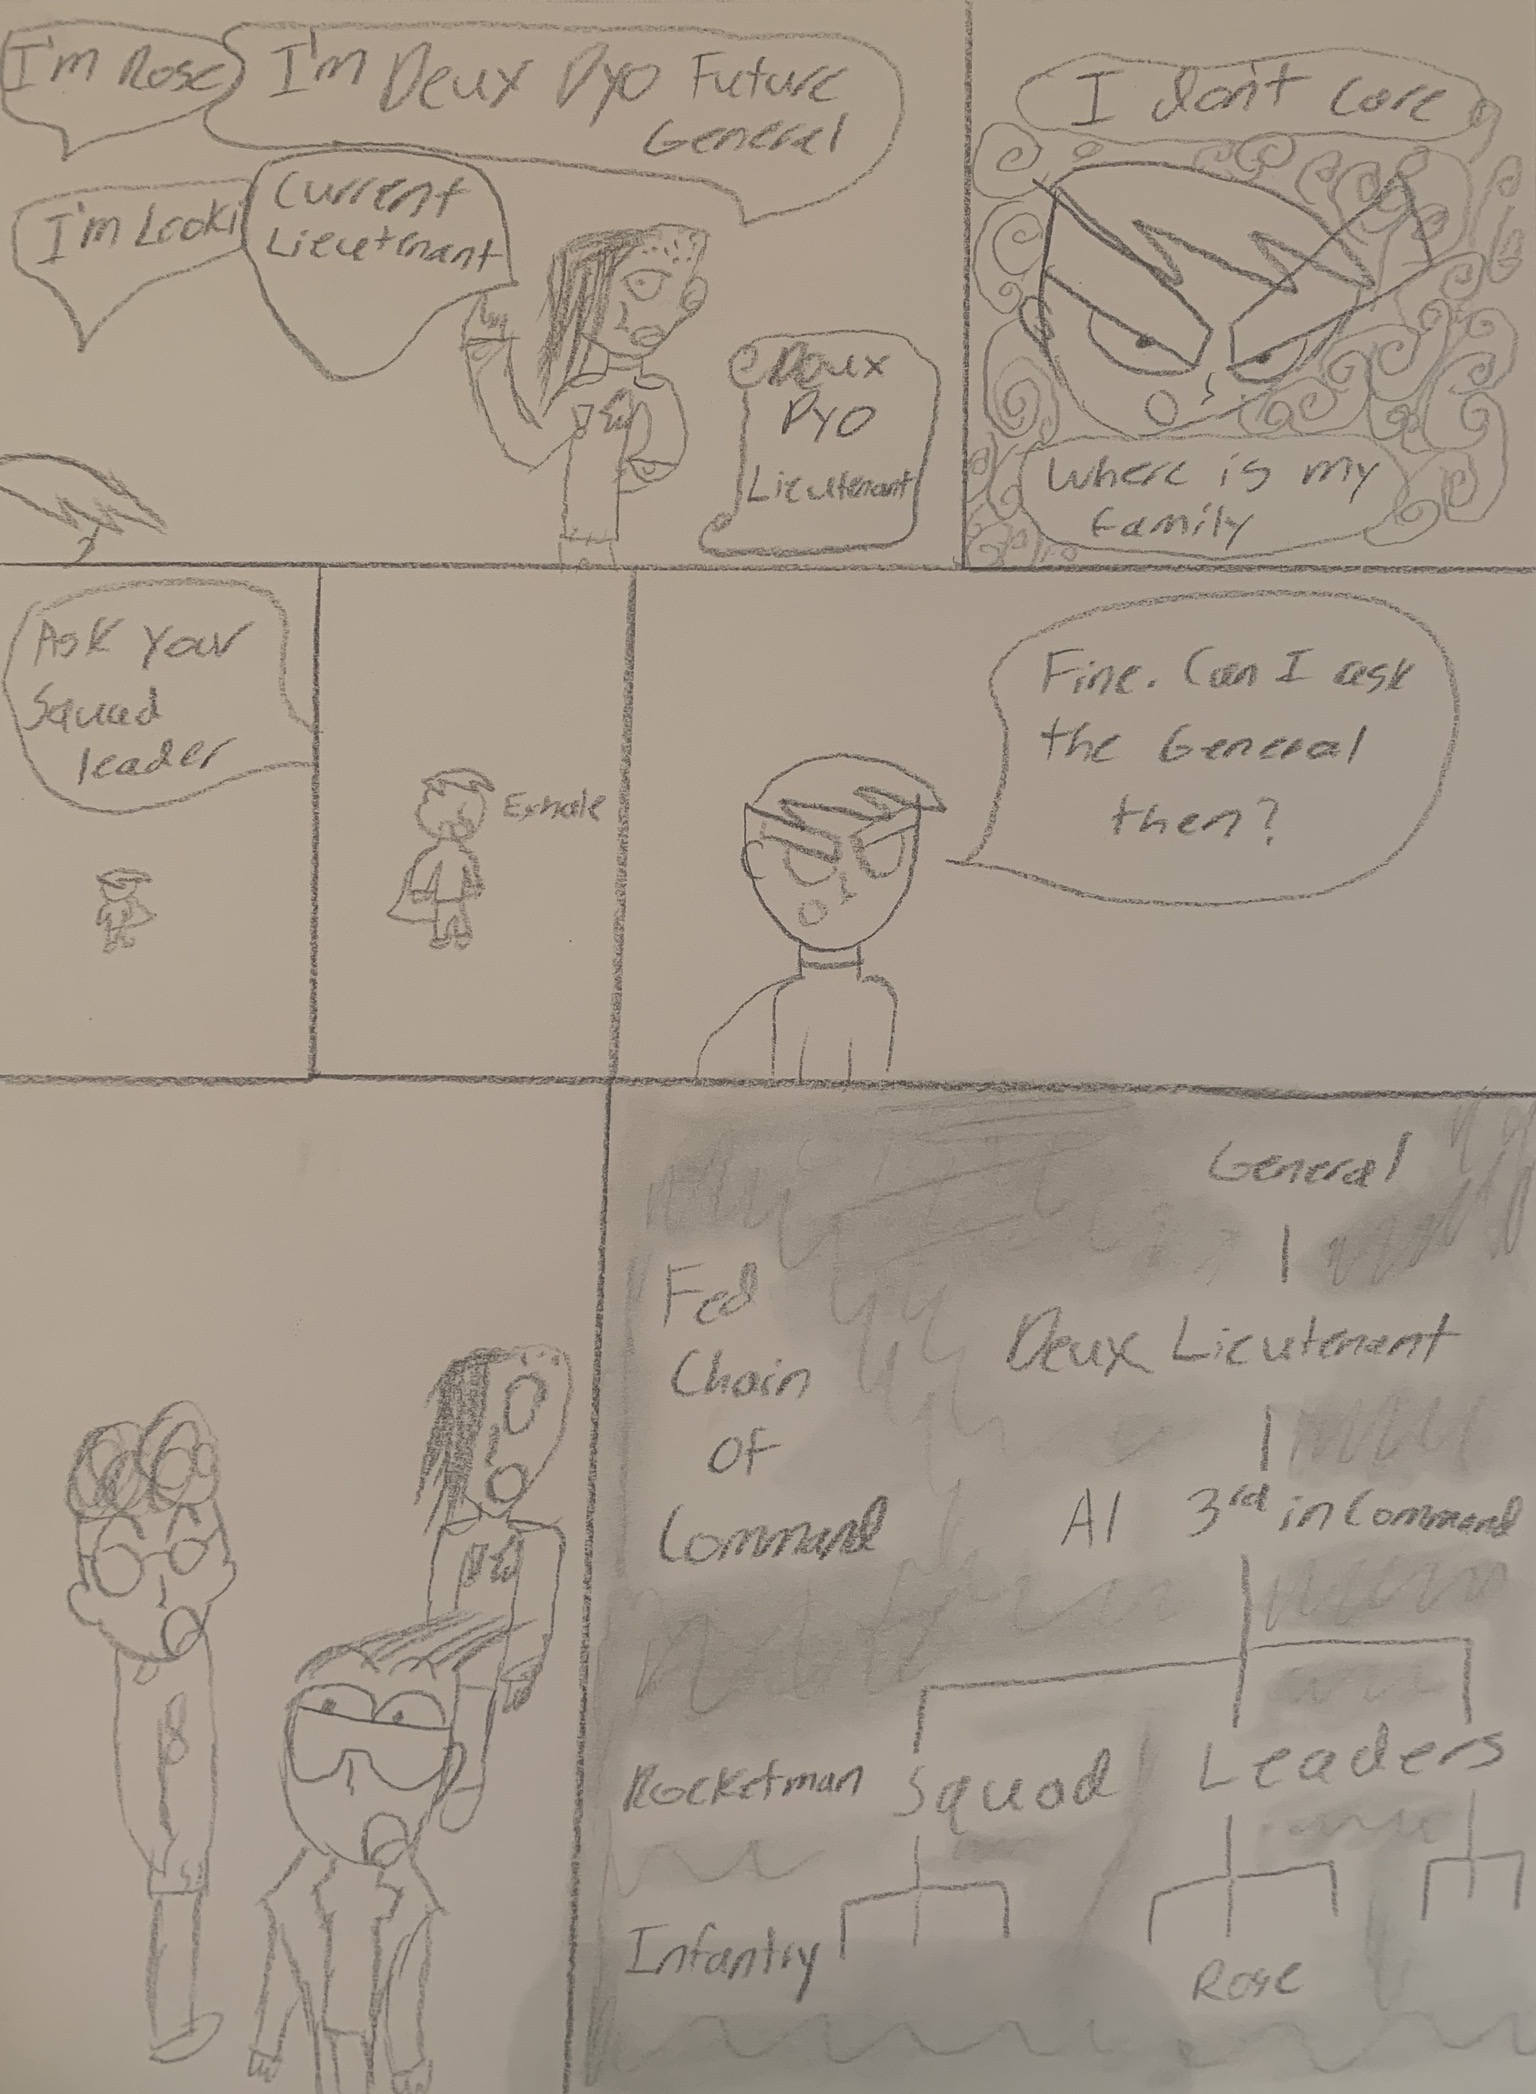 I'm Rose
I'm Deux Dyo Future
General
I'm Looki
Current
Lieutenant
Deux
Dyo
Lieutenant
I don't care
Where is my
family
Ask your
Squad
leader
Exhale
Fine. Can I ask
the General
then?
Fed
Chain
of
Command
General
Deux Lieutenant
Al 3rd in Command
Rocketman Squad Leaders
Infantry
Rose